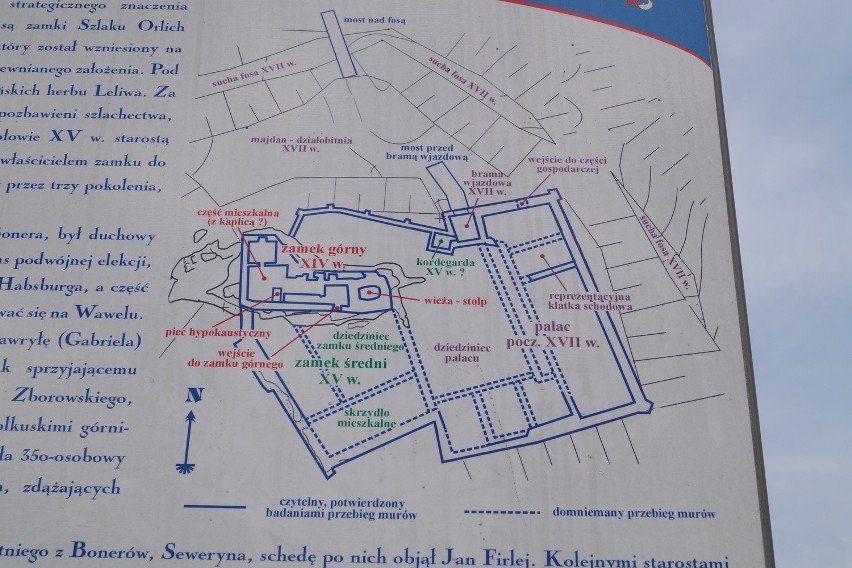 strategicznego znaczenia
są zamki Szlaku Orlich
który został wzniesiony na
ewnianego założenia. Pod
ńskich herbu Leliwa. Za
pozbawieni szlachectwa,
ołowie XV w. starostą
właścicielem zamku do
przez trzy pokolenia,
ionera, był duchowy
as podwójnej elekcji,
Habsburga, a część
wać się na Wawelu.
awryłę (Gabriela)
k sprzyjającemu
Zborowskiego,
olkuskimi górni-
ła 350-osobowy
a, zdążających
most nad fosą
sucha fosa XVII w.
sucha fosa XVII w.
majdan - działobitnia
XVII w.
most przed
bramą wjazdową
brama
wjazdowa
XVII w.
wejście do części
gospodarczej
sucha fosa XVII w.
część mieszkalna
(z kaplicą ?)
zamek górny
XIV w.
kordegarda
XV w. ?
wieża - stołp
reprezentacyjna
klatka schodowa
piec hypokaustyczny
wejście
do zamku górnego
dziedziniec
zamku średniego
zamek średni
XV w.
dziedziniec
pałacu
pałac
pocz. XVII w.
skrzydło
mieszkalne
N
czytelny, potwierdzony
badaniami przebieg murów
domniemany przebieg murów
tniego z Bonerów, Seweryna, schedę po nich objął Jan Firlej. Kolejnymi starostami